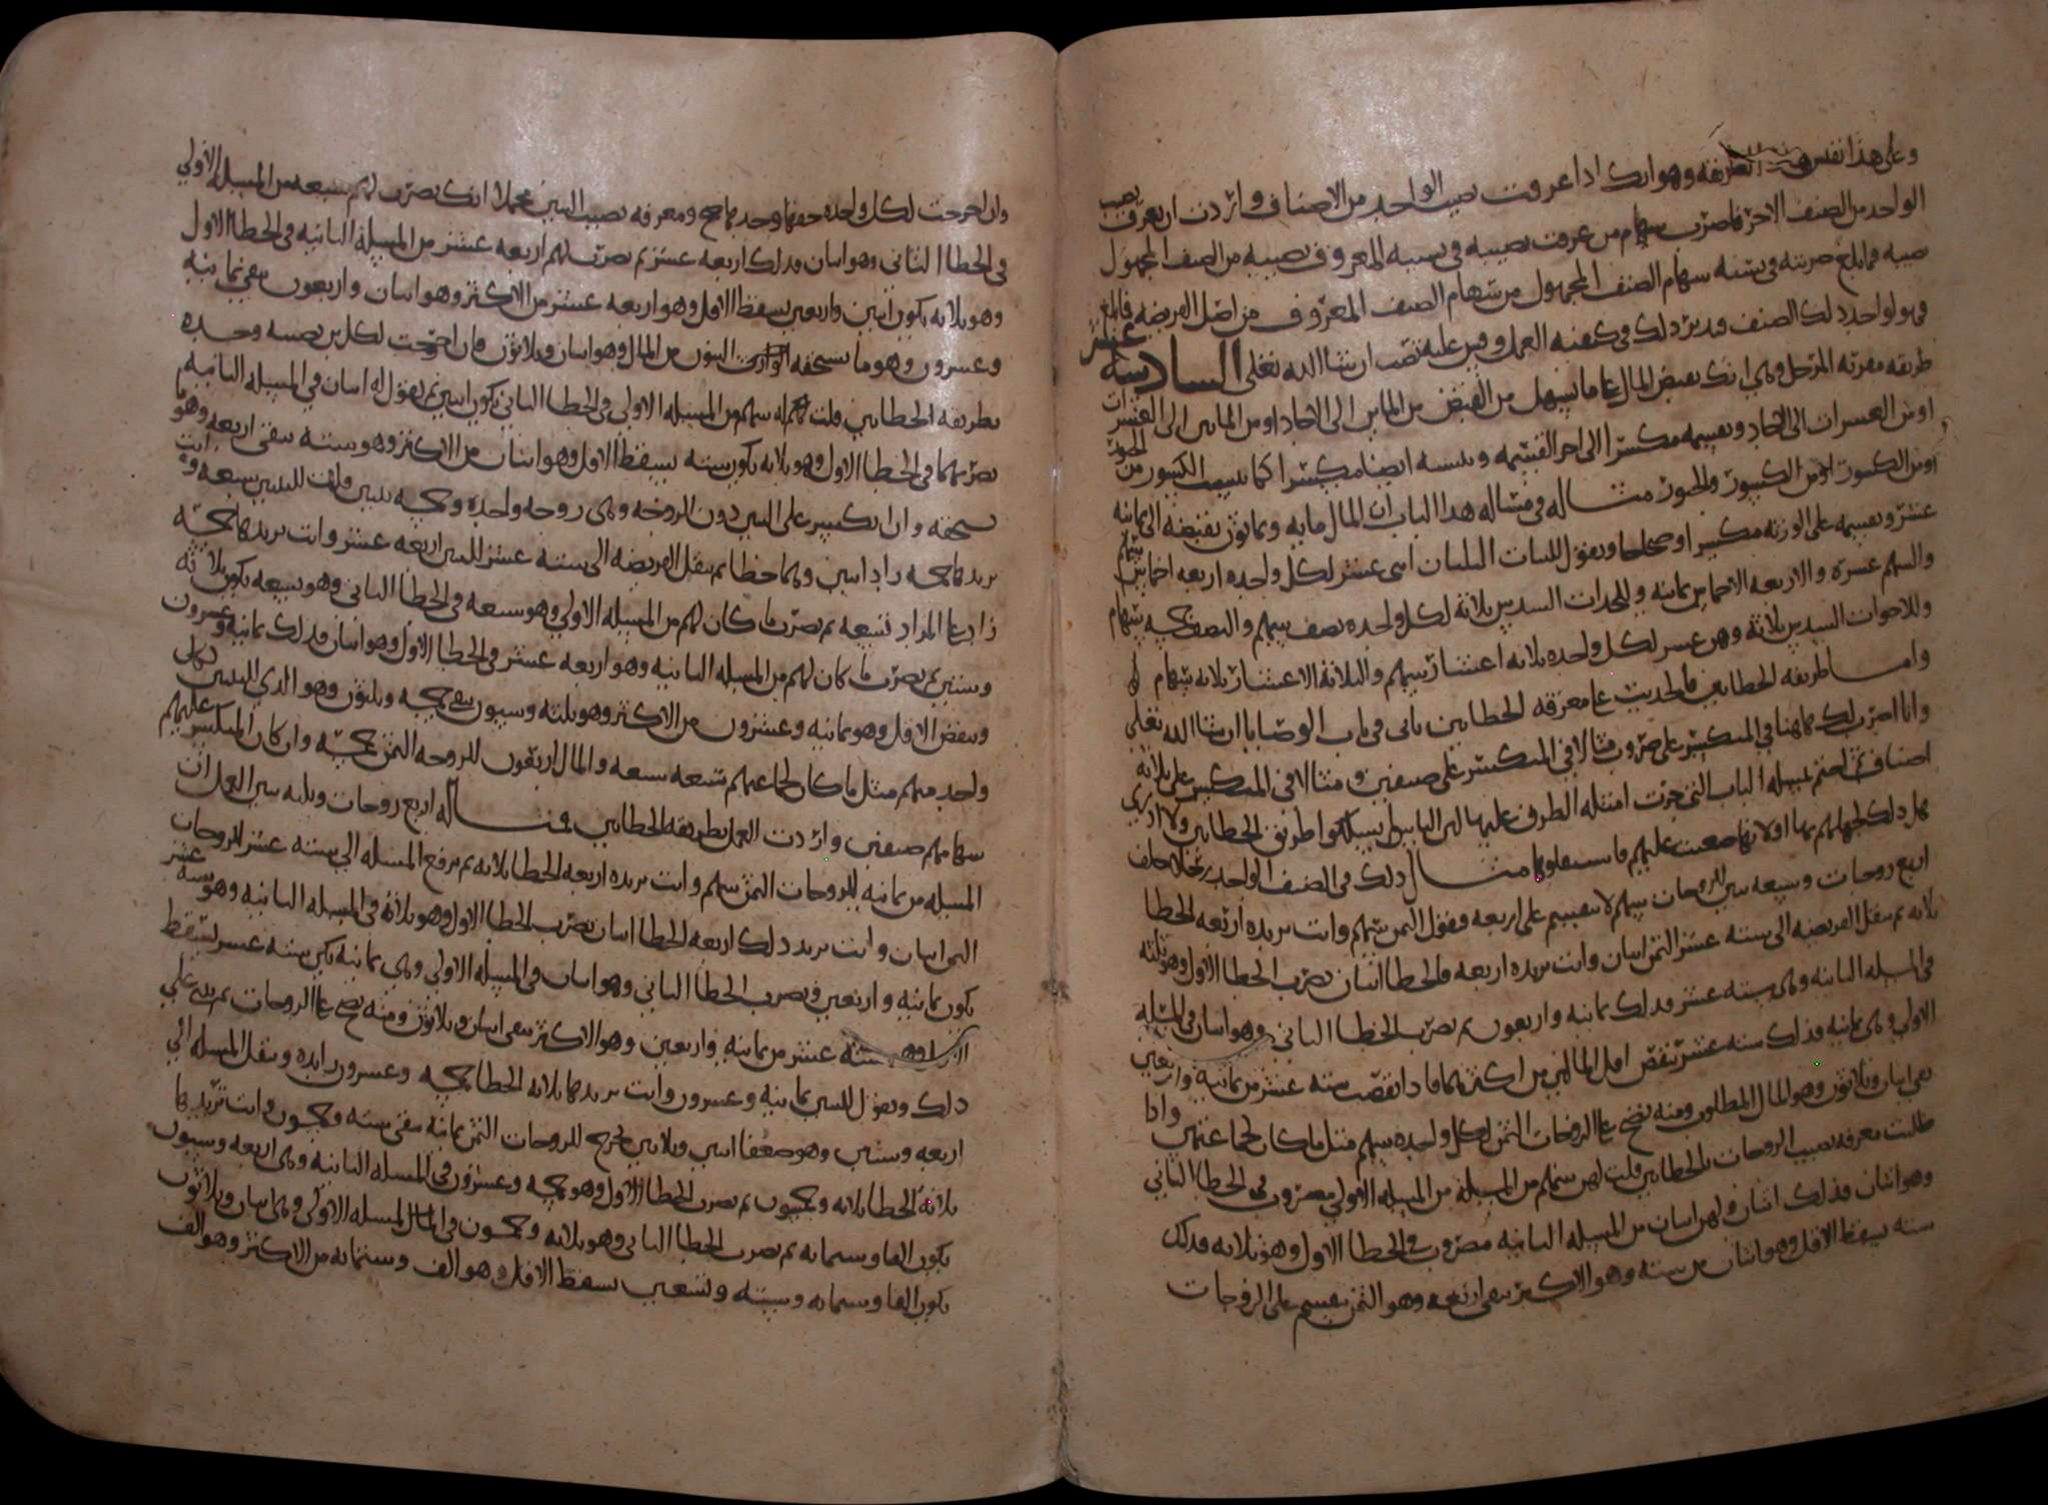 وعلى هذا نفس الطريقه وهو انك اذا عرفت نصيب الواحد من الاصناف واردت ان تعرف نصيب
الواحد من الصنف الاخر فاضرب سهام من عرفت نصيبه في نسبه المعروف نصيبه من الصنف المجهول
نصيبه فما بلغ ضربته في نسبه سهام الصنف المجهول من سهام الصنف المعروف من اصل الفريضه فما بلغ
فهو لواحد ذلك الصنف وقد يرد ذلك في كيفيه العمل وقس عليه تصب ان شا الله تعلى السادسه عشر
طريقه معرفه وهي انك تقبض المال على ما يسهل من القبض من المايين الى الاحاد او من المايين الى العشرات
او من العشرات الى الاحاد وتقسمه مكسرا الى اخر القسمه وتنسبه ايضا مكسرا كما تنسب الكسور من
او من الكسور مثاله في مثاله هذا الباب ان المال مايه وثمانون تقبضه الى ثمانيه
عشر وتقسمه على الورثه مكسرا او صحاحا وتقول للبنات الثلثان اثنى عشر لكل واحده اربعه اخماس سهم
والسهم عشره والاربعه الاخماس ثمانيه وللجدات السدس ثلاثه لكل واحده نصف سهم والنصف خمسه سهام
وللاخوات السدس ثلاثه وهن عشر لكل واحده ثلاثه اعشار سهم والثلاثه الاعشار ثلاثه سهام
واما طريقه الخطاين فالحديث على معرفه الخطاين ياتي في باب الوصايا ان شا الله تعلى
وانا اضرب لك هاهنا في المنكسر على ضرب مثالا في المنكسر على صنفين ومثالا في المنكسر على ثلاثه
اصناف ثم اختم بمسله الباب التي جرت امثله الطرق عليها لان الناس لم يسلكوا طريق الخطاين ولا ادري
هل ذلك لجهلهم بها او لانها صعبت عليهم فاستثقلوها مثال ذلك في الصنف الواحد رجل خلف
اربع زوجات وسبعه بنين للزوجات سهم لا ينقسم على اربعه فنقول الثمن سهم وانت تريده اربعه الخطا
ثلاثه ثم تنقل الفريضه الى سته عشر الثمن اثنان وانت تريده اربعه فالخطا اثنان تضرب الخطا الاول وهو ثلثه
في المسله الثانيه وهي سته عشر فذلك ثمانيه واربعون ثم تضرب الخطا الثاني وهو اثنان في المسله
الاولى وهي ثمانيه فذلك سته عشر تنقص اقل المالين من اكثرهما فاذا نقصت سته عشر من ثمانيه واربعين
بقي اثنان وثلاثون وهو المال المطلوب ومنه تصح على الزوجات الثمن لكل واحده سهم مثل ما كان لجماعتهن واذا
طلبت معرفه نصيب الزوجات بالخطاين قلت لهن سهم من المسله الاولى مضروب في الخطا الثاني
وهو اثنان فذلك اثنان ولهن اثنان من المسله الثانيه مضروب في الخطا الاول وهو ثلاثه فذلك
سته يسقط الاقل وهو اثنان من سته وهو الاكثر يبقى اربعه وهو الثمن يقسم على الزوجات
وان اخرجت لكل واحده حقها وحدها صح ومعرفه نصيب البنين مجملا انك تضرب لهم سبعه من المسله الاولى
في الخطا الثاني وهو اثنان فذلك اربعه عشر ثم تضرب لهم اربعه عشر من المسله الثانيه في الخطا الاول
وهو ثلاثه يكون اثنين واربعين يسقط الاقل وهو اربعه عشر من الاكثر وهو اثنان واربعون يبقى ثمانيه
وعشرون وهو ما يستحقه البنون من المال وهو اثنان وثلاثون فان اخرجت لكل بن نصيبه وحده
بطريقه الخطاين قلت له سهم من المسله الاولى في الخطا الثاني يكون اثنين ثم يقول له اثنان في المسله الثانيه
تضربهما في الخطا الاول وهو ثلاثه يكون سته يسقط الاول وهو اثنان من الاكثر وهو سته يبقى اربعه وهو ما
يستحقه وان انكسر على البنين دون الزوجه وهي زوجه واحده وخمسه بنين قلت للبنين سبعه وانت
تريدها خمسه زاد اثنين وهما خطا ثم تنقل الفريضه الى سته عشر للبنين اربعه عشر وانت تريدها خمسه
زاد على المراد تسعه ثم تضرب ما كان لهم من المسله الاولى وهو سبعه في الخطا الثاني وهو تسعه يكون ثلاثه
وستين ثم تضرب ما كان لهم من المسله الثانيه وهو اربعه عشر في الخطا الاول وهو اثنان فذلك ثمانيه وعشرون
وتنقص الاقل وهو ثمانيه وعشرون من الاكثر وهو ثلثه وستون يبقى خمسه وثلثون وهو الذي للبنين لكل
واحد منهم مثل ما كان لجماعتهم سبعه سبعه والمال اربعون للزوجه الثمن خمسه وان كان المنكسر عليهم
سهامهم صنفين واردت العمل بطريقه الخطاين فمثاله اربع زوجات وثلثه بنين العمل ان
المسله من ثمانيه للزوجات الثمن سهم وانت تريده اربعه الخطا ثلاثه ثم ترفع المسله الى سته عشر للزوجات
الثمن اثنان وانت تريد ذلك اربعه الخطا اثنان تضرب الخطا الاول وهو ثلاثه في المسله الثانيه وهو سته عشر
يكون ثمانيه واربعين وتضرب الخطا الثاني وهو اثنان في المسله الاولى وهي ثمانيه يكن سته عشر يسقط
سته عشر من ثمانيه واربعين وهو الاكثر يبقى اثنان وثلاثون ومنه تصح على الزوجات ثم تبني على
ذلك وتقول للبنين ثمانيه وعشرون وانت تريدها ثلاثه الخطا خمسه وعشرون زايده وتنقل المسله الى
اربعه وستين وهو ضعفا اثنين وثلاثين تخرج للزوجات الثمن ثمانيه يبقى سته وخمسون وانت تريدها
ثلاثه الخطا ثلاثه وخمسون ثم تضرب الخطا الاول وهو خمسه وعشرون في المسله الثانيه وهي اربعه وستون
يكون الفا وستمايه ثم تضرب الخطا الثاني وهو ثلاثه وخمسون في المسله الاولى وهي اثنان وثلاثون
يكون الفا وستمايه وسته وتسعين يسقط الاقل وهو الف وستمايه من الاكثر وهو الف